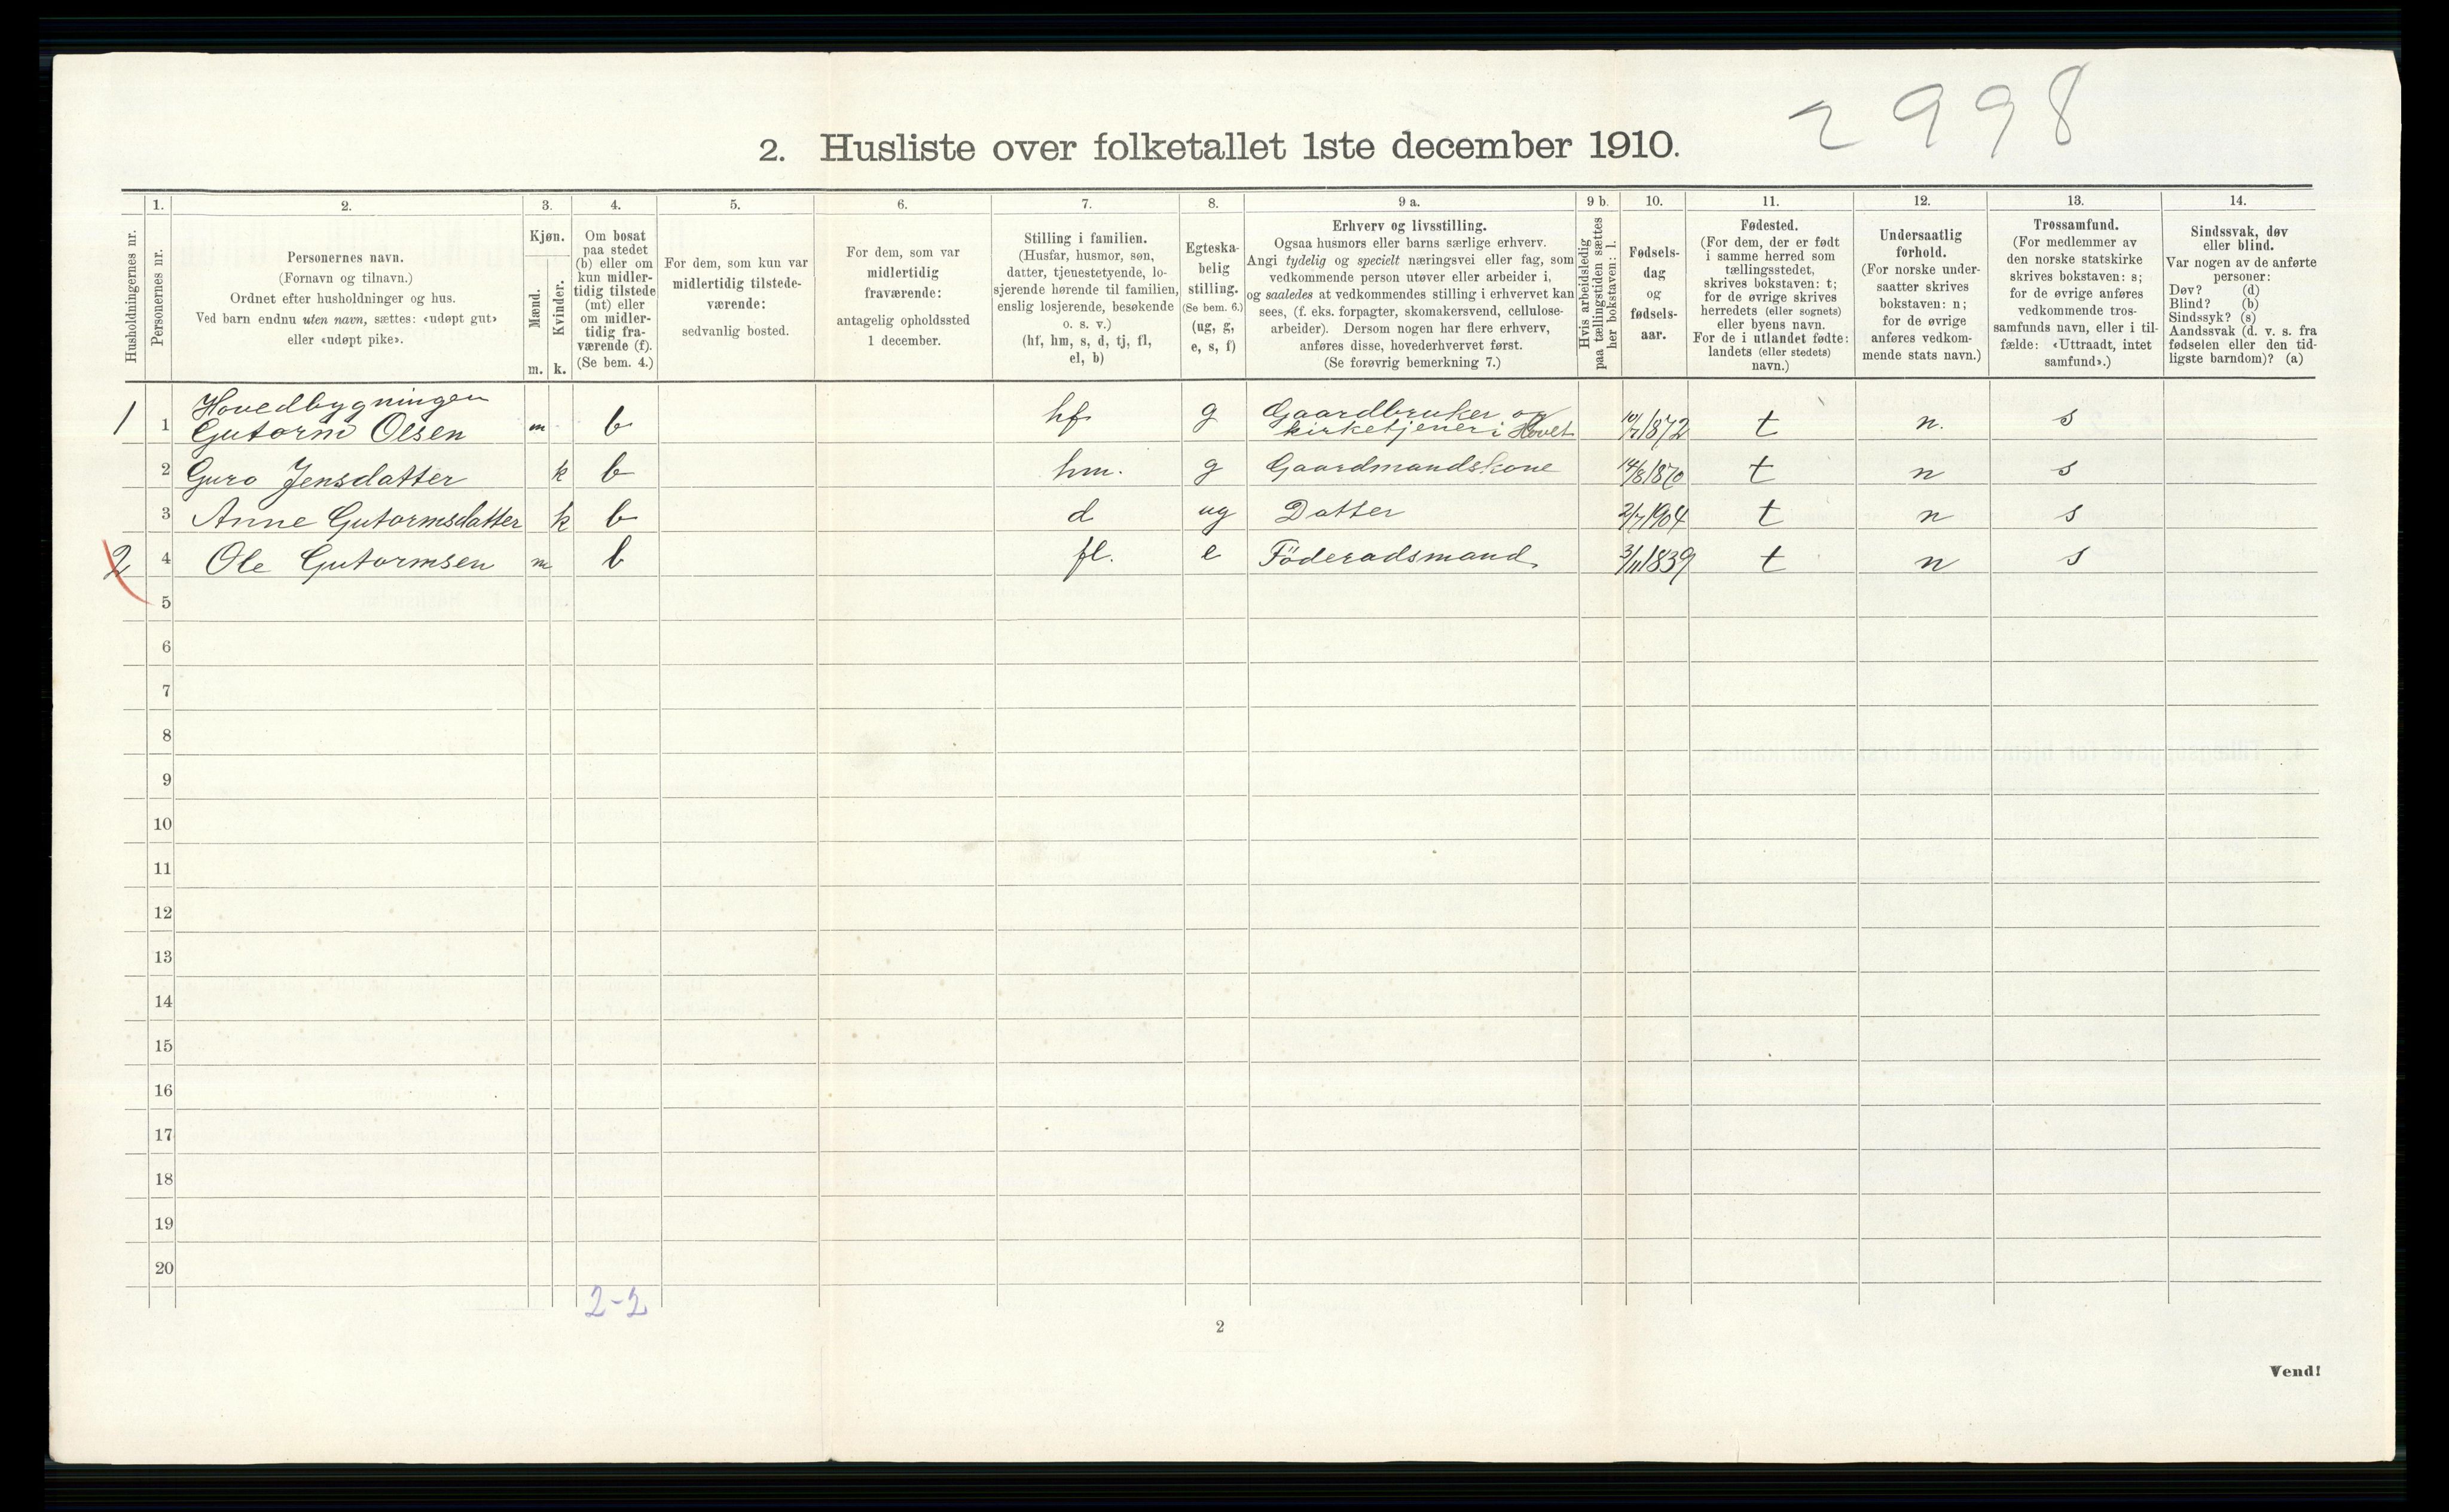 2998
2. Husliste over folketallet 1ste december 1910.
Husholdningernes nr.
1. Personernes nr.
2. Personernes navn.
(Fornavn og tilnavn.)
Ordnet efter husholdninger og hus.
Ved barn endnu uten navn, sættes: «udøpt gut»
eller «udøpt pike».
3. Kjøn.
Mænd. Kvinder.
m. k.
4. Om bosat
paa stedet
(b) eller om
kun midler-
tidig tilstede
(mt) eller
om midler-
tidig fra-
værende (f).
(Se bem. 4.)
5. For dem, som kun var
midlertidig tilstede-
værende:
sedvanlig bosted.
6. For dem, som var
midlertidig
fraværende:
antagelig opholdssted
1 december.
7. Stilling i familien.
(Husfar, husmor, søn,
datter, tjenestetyende, lo-
sjerende hørende til familien,
enslig losjerende, besøkende
o. s. v.)
(hf, hm, s, d, tj, fl,
el, b)
8. Egteska-
belig
stilling.
(Se bem. 6.)
(ug, g,
e, s, f)
9 a. Erhverv og livsstilling.
Ogsaa husmors eller barns særlige erhverv.
Angi tydelig og specielt næringsvei eller fag, som
vedkommende person utøver eller arbeider i,
og saaledes at vedkommendes stilling i erhvervet kan
sees, (f. eks. forpagter, skomakersvend, cellulose-
arbeider). Dersom nogen har flere erhverv,
anføres disse, hovederhvervet først.
(Se forøvrig bemerkning 7.)
9 b. Hvis arbeidsledig
paa tællingstiden sættes
her bokstaven: l.
10. Fødsels-
dag
og
fødsels-
aar.
11. Fødested.
(For dem, der er født
i samme herred som
tællingsstedet,
skrives bokstaven: t;
for de øvrige skrives
herredets (eller sognets)
eller byens navn.
For de i utlandet fødte:
landets (eller stedets)
navn.)
12. Undersaatlig
forhold.
(For norske under-
saatter skrives
bokstaven: n;
for de øvrige
anføres vedkom-
mende stats navn.)
13. Trossamfund.
(For medlemmer av
den norske statskirke
skrives bokstaven: s;
for de øvrige anføres
vedkommende tros-
samfunds navn, eller i til-
fælde: «Uttraadt, intet
samfund».)
14. Sindssvak, døv
eller blind.
Var nogen av de anførte
personer:
Døv? (d)
Blind? (b)
Sindssyk? (s)
Aandssvak (d. v. s. fra
fødselen eller den tid-
ligste barndom)? (a)
Hovedbygningen
1 1 Gutorm Olsen m b hf g Gaardbruker og kirketjener i Hovet 10/7 1872 t n. s
2 Guro Jensdatter k b hm. g Gaardmandskone 14/8 1870 t n s
3 Anne Gutormsdatter k b d ug Datter 2/7 1904 t n s
2 4 Ole Gutormsen m b fl. e Föderadsmand 3/11 1839 t n s
5
6
7
8
9
10
11
12
13
14
15
16
17
18
19
20
2-2
2
Vend!